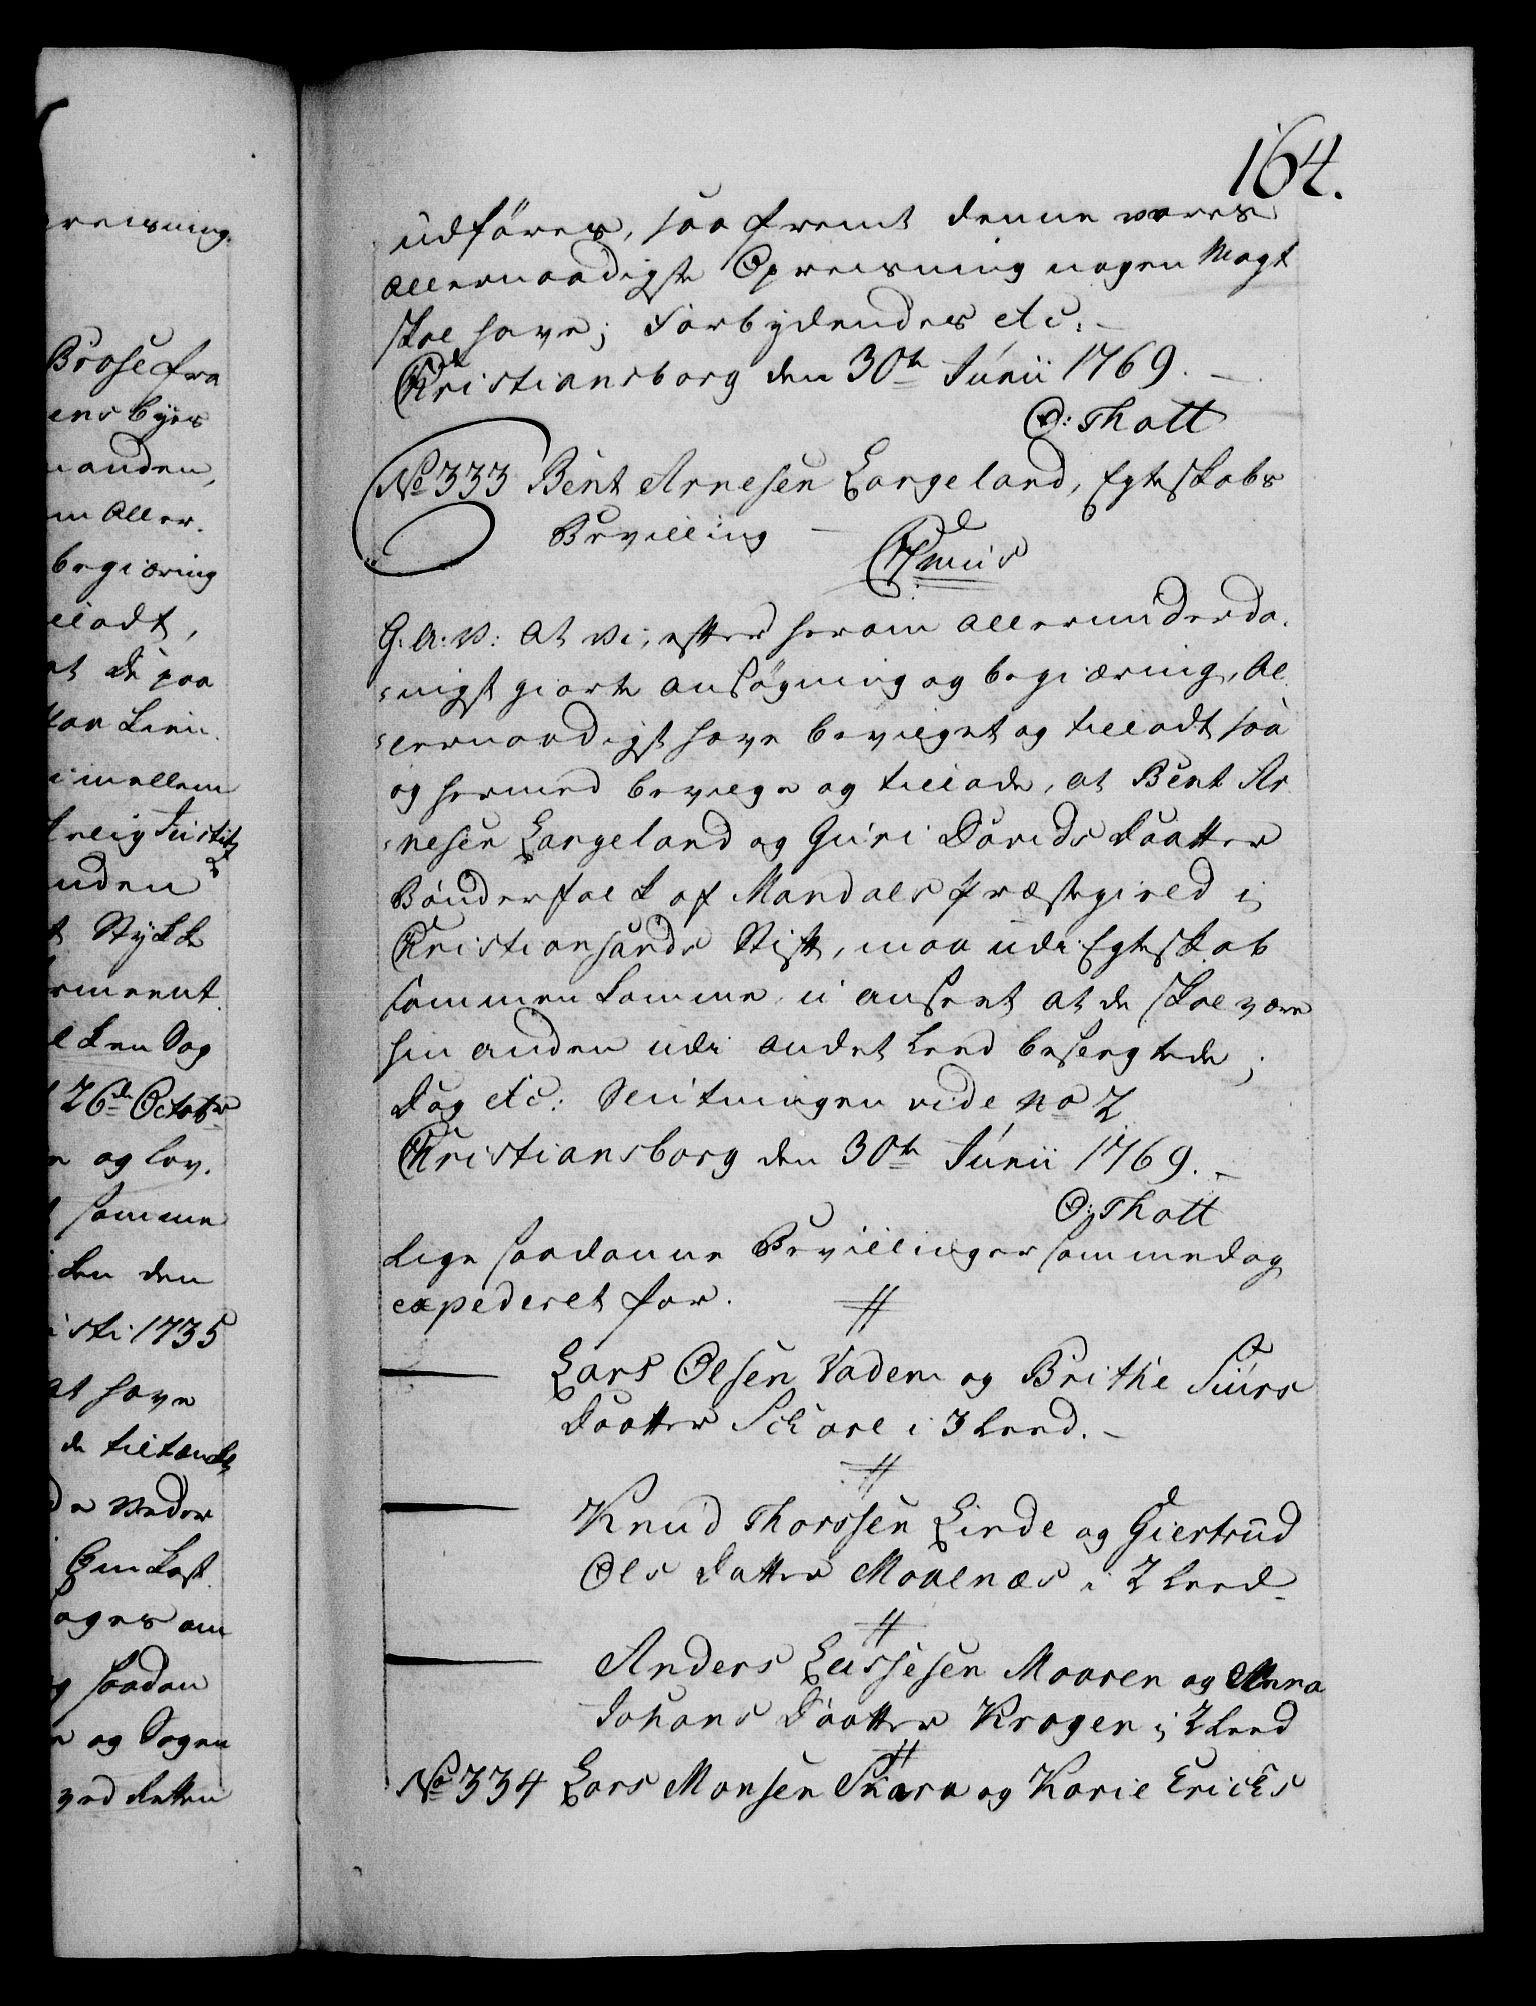 164.
udföres, saa fremt denne vores
allernaadigste Opreisning nogen Magt
skal have; Forbydendes etc:
Christiansborg den 30te Junii 1769.
O: Thott
No 333 Bent Arnesen Langeland, Egteskabs
Bevilling
Gratis
G: A: V: at vi, efter herom allerunderda-
nigst giorte ansøgning og begiæring, Al-
lernaadigst have bevilget og tilladt, saa
og hermed bevilge og tillade, at Bent Ar-
nesen Langeland og Guri Davids Daatter
Bønderfolk af Mandals Præstegield i
Christiansands Stift, maa udi Egteskab
sammenkomme, uanseet at de skal være
hinanden udi andet Leed besvogrede;
Dog etc: Slutningen vide No 2
Christiansborg den 30te Junii 1769.
O: Thott
Lige saadanne Bevillinger samme dag
expederet for.
Lars Olsen Vadem og Brithe Siurs
Daatter Schare i 3 Leed.
Knud Thorssen Linde og Giertrud
Ols Datter Moalnæs i 2 Leed.
Anders Lassesen Moaren og Anna
Johans Daatter Krogen i 2 Leed
No 334 Lars Monsen Skare og Karie Erichs
reisning.
Brose fra
ens byes
anden,
m aller-
begiæring
illadt,
at de paa
imellem
Justitz
uden
Stykke
26de Octobr
og lov.
samme
den
1735
at have
de tiltænkte
Omkost
ages om
saadan
og Sagen
ved Retten